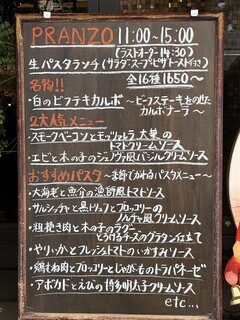 PRANZO 11:00～15:00
(ラストオーダー14:30)
生パスタランチ(サラダ・スープ・ピザトースト付き)
全16種 1650～
名物!!
・白のビフテキカルボ ～ビーフステーキをのせた
カルボナーラ～
2大人気メニュー
・スモークベーコンとモッツァレラ、大葉の
トマトクリームソース
・エビと木の子のジェノヴァ風バジルクリームソース
おすすめパスタ ～まだまだあるパスタメニュー～
・大海老と魚介の漁師風トマトソース
・サルシッチャと黒トリュフとブロッコリーの
ノルチャ風クリームソース
・粗挽き肉と木の子のラグー
とろけるチーズのグラタン仕立て
・やりいかとフレッシュトマトのいかすみソース
・鶏むね肉とブロッコリーとじゃがいものトラパネーゼ
・アボカドとえびの博多明太子クリームソース
etc...